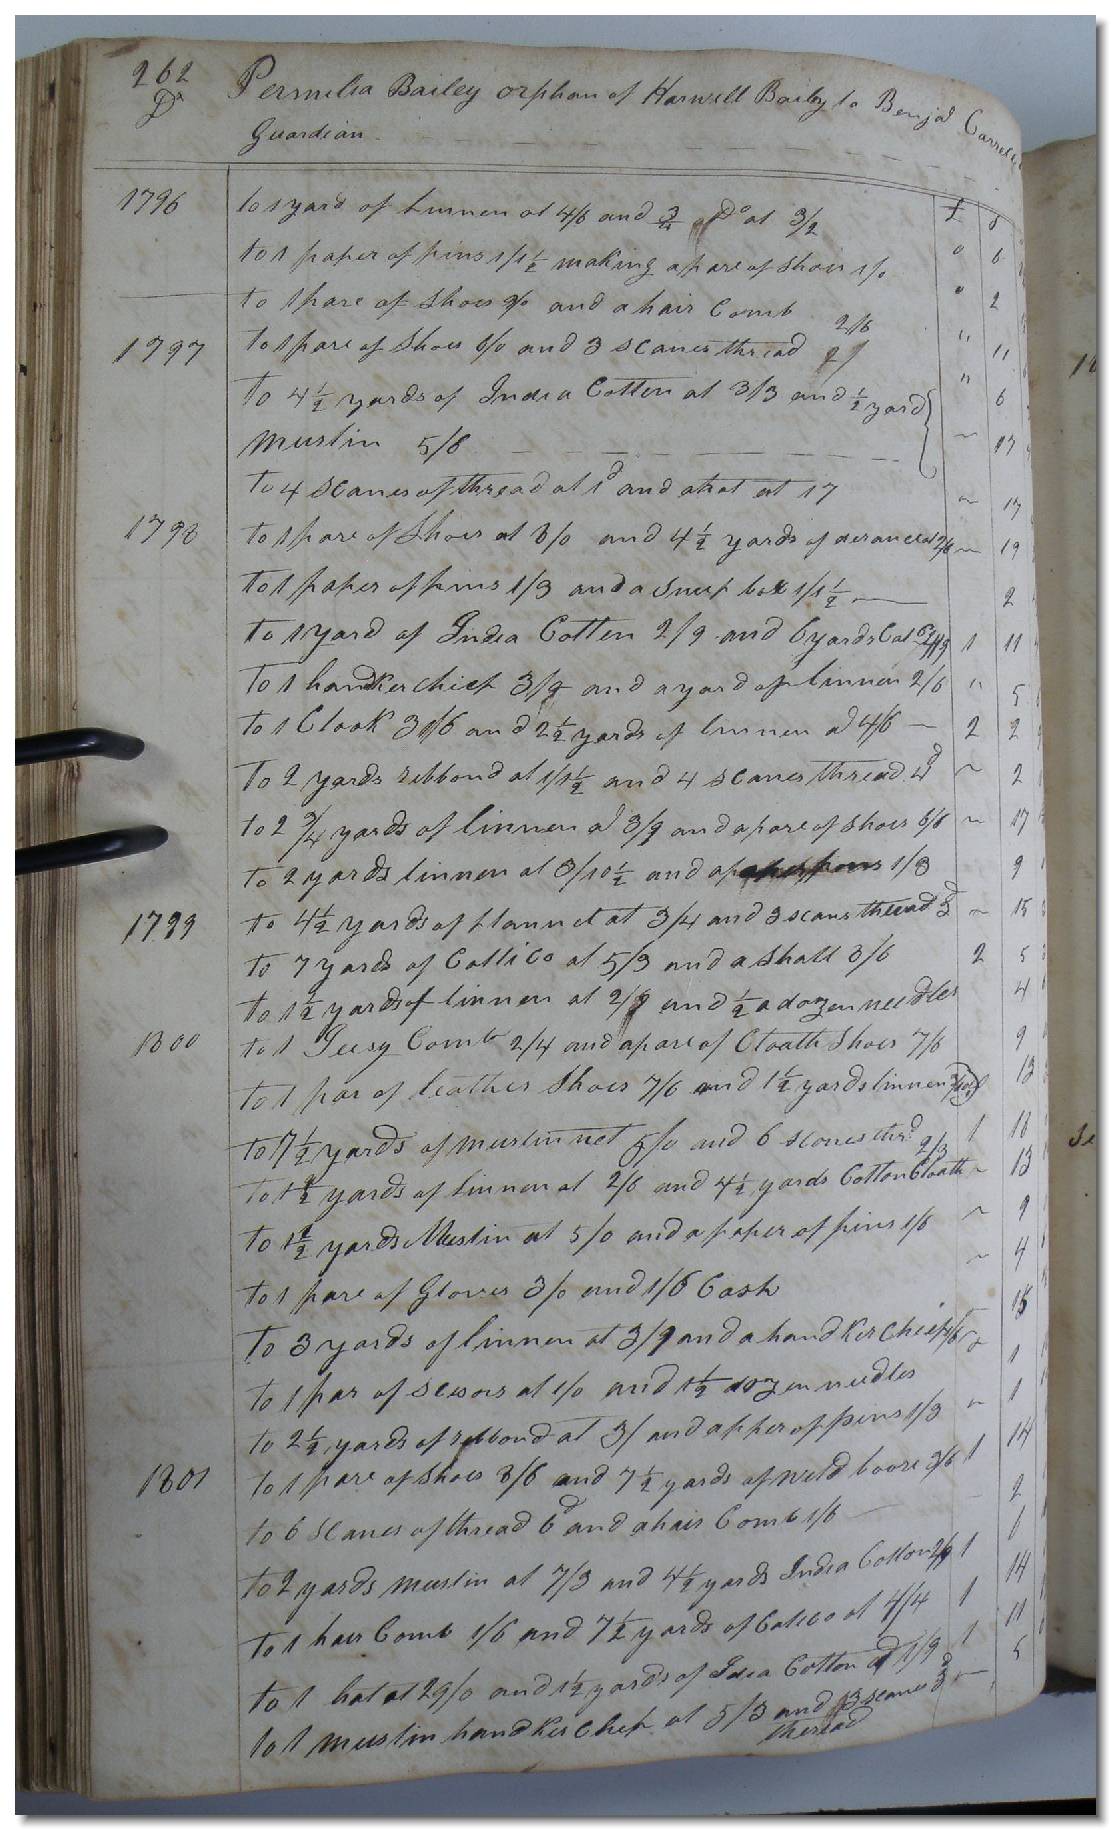 262
Dr Permelia Bailey orphan of Harwell Bailey to Benjd
Guardian
£ s
1796 to 1 yard of Linnen at 4/6 and 3/4 Do at 3/2 " 6
to 1 paper of pins 1/1½ making a pare of Shoes 1/0 " 2
to 1 pare of Shoes 9/0 and a hair Comb 2/6 " 11
1797 to 1 pare of Shoes 6/0 and 3 scanes thread " 6
to 4½ yards of India Cotten at 3/3 and ½ yard
muslin 5/6 ~ 17
to 4 scanes of thread at 1d and a hat at 17 ~ 17
1798 to 1 pare of Shoes at 8/0 and 4½ yards of at 2/6 ~ 19
to 1 paper of pins 1/3 and a Snuf box 1/1½ 2
to 1 yard of India Cotten 2/9 and 6 yards 1 11
to 1 handkerchief 3/9 and a yard of linnen 2/6 " 5
to 1 Cloak 31/6 and 2½ yards of linnen at 4/6 2 2
to 2 yards rebbond at 1/1½ and 4 scanes thread 4d ~ 2
to 2 3/4 yards of linnen at 3/9 and a pare of Shoes 6/6 ~ 17
to 2 yards linnen at 3/10½ and 1/3 9
1799 to 4½ yards of flannel at 3/4 and 3 scans thread 3d ~ 15
to 7 yards of Callico at 5/3 and a Shall 8/6 2 5
to 1½ yards of linnen at 2/9 and ½ a dozen needles 4
1800 to 1 Comb 2/4 and a pare of Cloath Shoes 7/6 9
to 1 par of leather Shoes 7/6 and 1½ yards linnen 13
to 7½ yards of muslin net 5/0 and 6 scanes thrd 1 18
to 1½ yards of linnen at 2/6 and 4½ yards Cotton Cloath 2/3 ~ 13
to 1½ yards Muslin at 5/0 and a paper of pins 1/6 ~ 9
to 1 pare of Gloves 3/0 and 1/6 Cash ~ 4
to 3 yards of linnen at 3/9 and a handkerchief 15
to 1 par of scisors at 1/0 and 1½ dozen needles 1
to 2½ yards of rebbond at 3/ and a pper of pins 1/3 ~ 1
1801 to 1 pare of Shoes 8/6 and 7½ yards of 3/6 1 14
to 6 scanes of thread 6d and a hair Comb 1/6 2
to 2 yards muslin at 7/3 and 4½ yards India Cotton 2/9 1
to 1 hair Comb 1/6 and 7½ yards of Calico at 4/4 1 14
to 1 hat at 29/0 and 1½ yards of Idea Cotton at 1/9 1 11
to 1 muslin handkerchef at 5/3 and 3 scanes 3d 5
theread